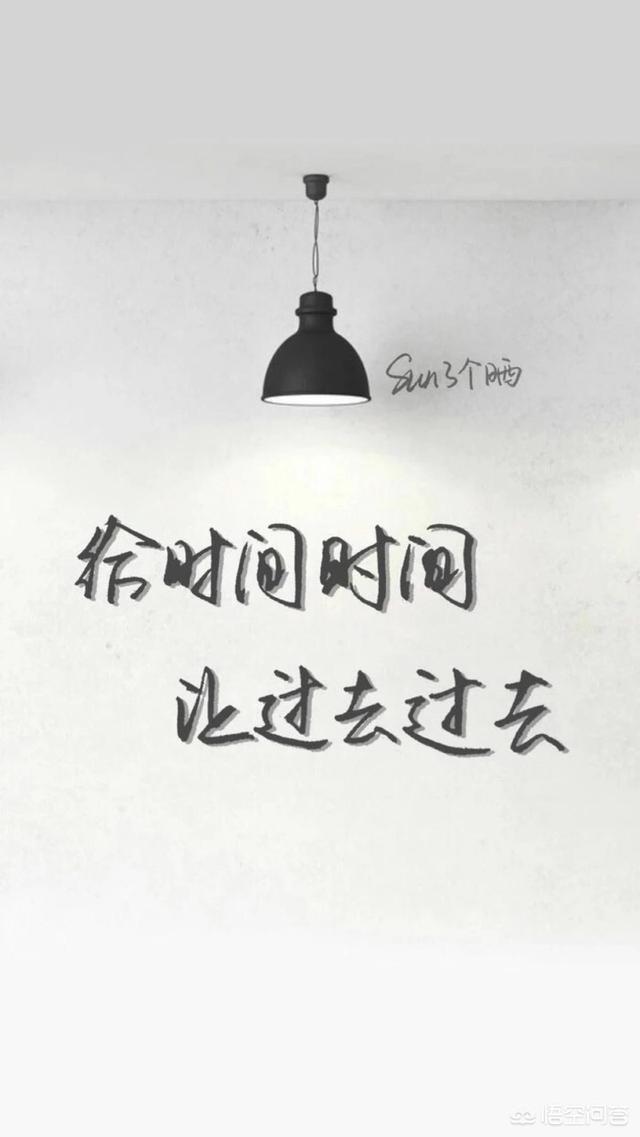 Sun了个晒
给时间时间
让过去过去
悟空问答